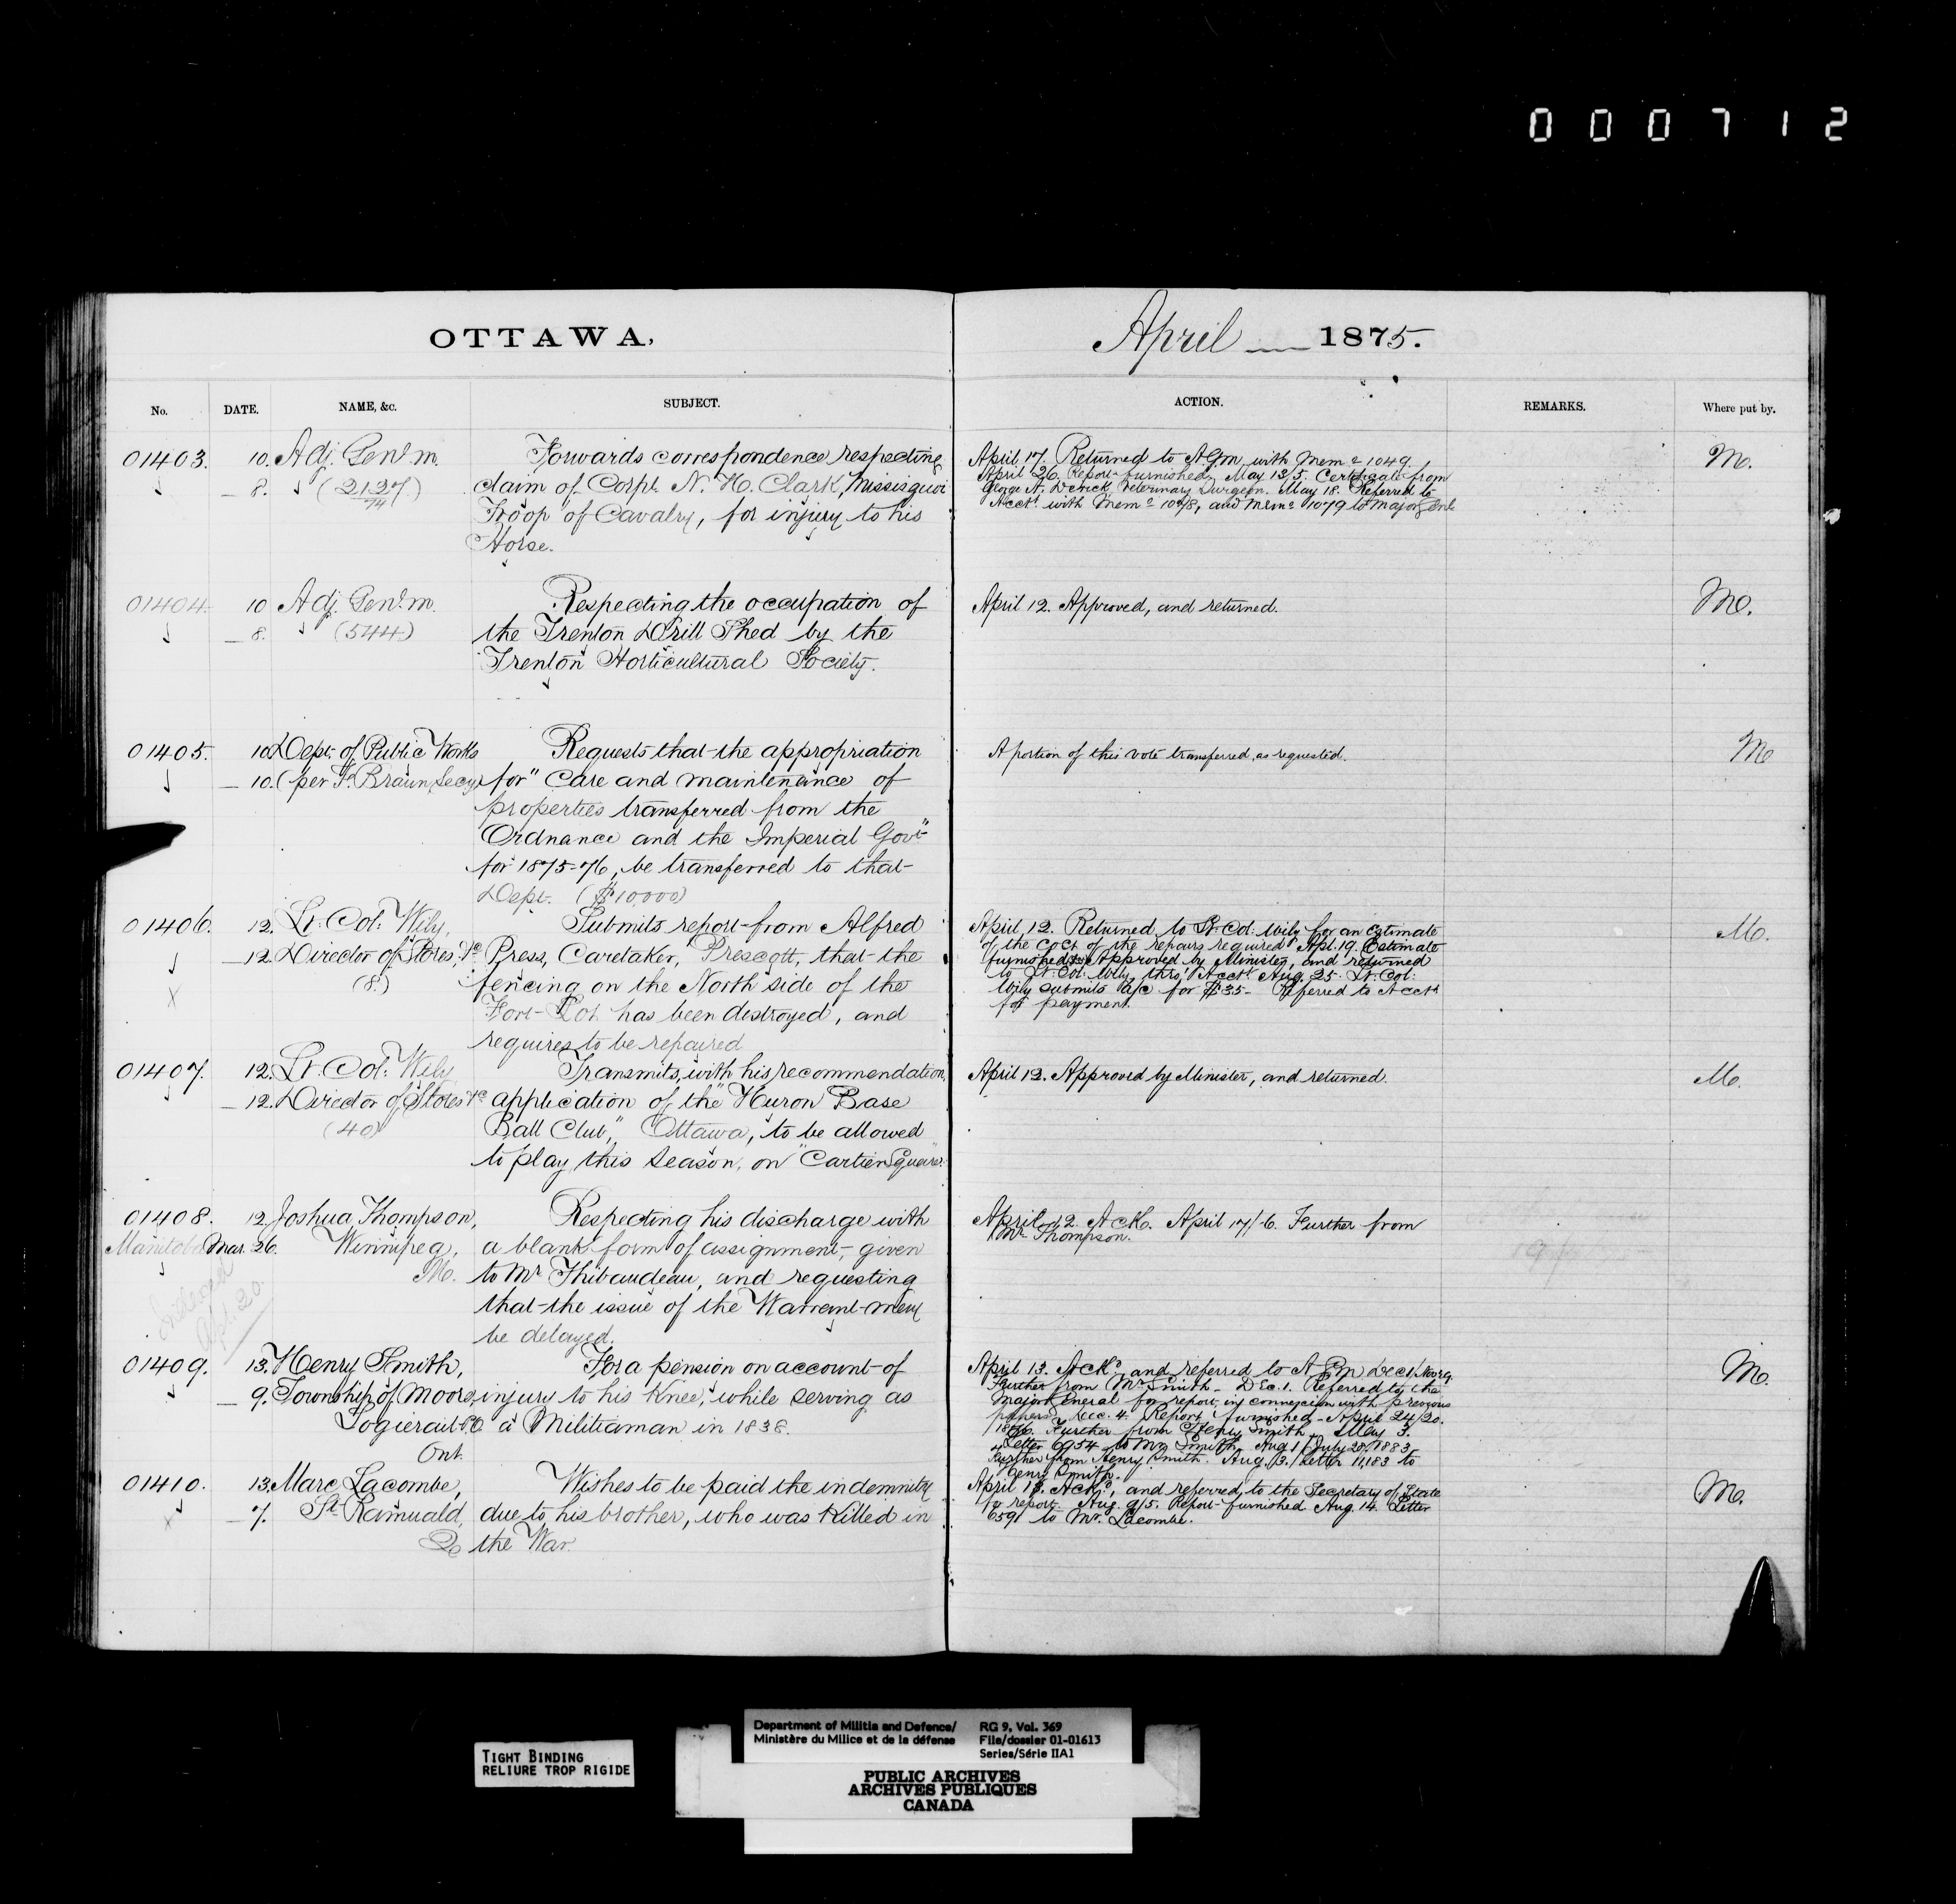 000712
OTTAWA, April 1875.
No. DATE. NAME, &c. SUBJECT. ACTION. REMARKS. Where put by.
01403. 10. Adj. Genl. M. Forwards correspondence respecting
— 8. (2127/74) claim of Corpl. N. H. Clark, Missisquoi
Troop of Cavalry, for injury to his
Horse.
April 17. Returned to A.G.M. with Memo 1049.
April 26. Report furnished, May 13/5. Certificate from
George N. Derick, Veterinary Surgeon. May 18. Referred to
Acct. with Memo 1078, and Memo 1079 to Major Genl
M.
01404. 10 Adj. Genl. M. Respecting the occupation of
— 8. (544) the Trenton Drill Shed by the
Trenton Horticultural Society.
April 12. Approved, and returned.
M.
01405. 10. Dept. of Public Works Requests that the appropriation
— 10. (per F. Braun, Secy) for "Care and maintenance of
properties transferred from the
Ordnance and the Imperial Govt"
for 1875-76, be transferred to that
Dept. ($10,000)
A portion of this vote transferred as requested.
M
01406. 12. Lt. Col. Wily, Submits report from Alfred
— 12. Director of Stores, &c Press, Caretaker, Prescott, that the
(8.) fencing on the North side of the
X Fort Lot has been destroyed, and
requires to be repaired
April 12. Returned to Lt. Col. Wily for an Estimate
of the cost of the repairs required. Apl. 19. Estimate
furnished, Approved by Minister, and returned
to Lt. Col. Wily, thro' Acct. Aug. 25. Lt. Col:
Wily submits a/c for $35- Referred to Acct
for payment.
M.
01407. 12. Lt. Col. Wily Transmits, with his recommendation,
— 12. Director of Stores &c application of the "Huron Base
(40) Ball Club," Ottawa, to be allowed
to play this season, on "Cartier Square."
April 12. Approved by Minister, and returned.
M.
01408. 12. Joshua Thompson, Respecting his discharge with
Manitoba Mar. 26. Winnipeg, a blank form of assignment, given
M. to Mr. Thibaudeau, and requesting
that the issue of the Warrant may
be delayed.
Apl. 20
April 12. Ack. April 17/6. Further from
Mr. Thompson.
01409. 13. Henry Smith, For a pension on account of
— 9. Township of Moore, injury to his Knee, while serving as
Logierait P.O. a Militiaman in 1838.
Ont.
April 13. Ackd. and referred to A.G.M. Dec 1/Nov 29.
Further from Mr. Smith - Dec. 1. Referred to the
Major General for report in connexion with previous
papers. Dec. 4. Report furnished - April 24/20.
1876. Further from Henry Smith, May 3.
Letter 6954 to Mr. Smith. Aug 1/July 20/1883
Further from Henry Smith. Aug. 3./Letter 11,183 to
Henry Smith.
M.
01410. 13. Marc Lacombe, Wishes to be paid the indemnity
X — 7. St. Romuald, due to his brother, who was Killed in
Q. the War.
April 13. Ackd., and referred to the Secretary of State
for report. Aug. 9/5. Report furnished Aug. 14. Letter
6591 to Mr. Lacombe.
M.
TIGHT BINDING
RELIURE TROP RIGIDE
Department of Militia and Defence/
Ministère du Milice et de la défense
RG 9, Vol. 369
File/dossier 01-01613
Series/Série IIA1
PUBLIC ARCHIVES
ARCHIVES PUBLIQUES
CANADA